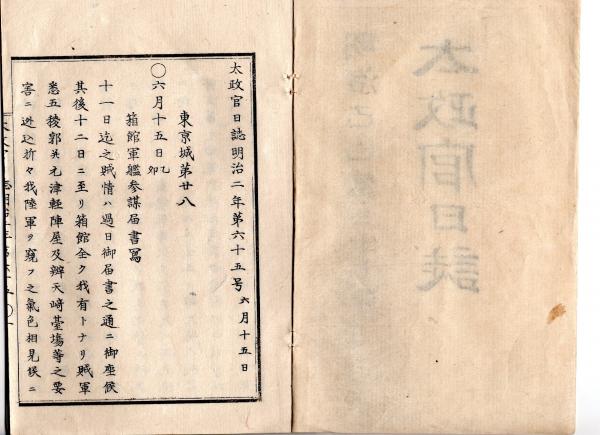 太政官日誌
太政官日誌明治二年第六十五号 六月十五日
東京城第廿八
〇六月十五日乙卯
箱館軍艦參謀届書寫
十一日迄之賊情ハ過日御届書之通ニ御座候
其後十二日ニ至リ箱館全ク我有トナリ賊軍
悉五稜郭并元津軽陣屋及辨天﨑臺塲等之要
害ニ迯込折々我陸軍ヲ窺フ之氣色相見候ニ